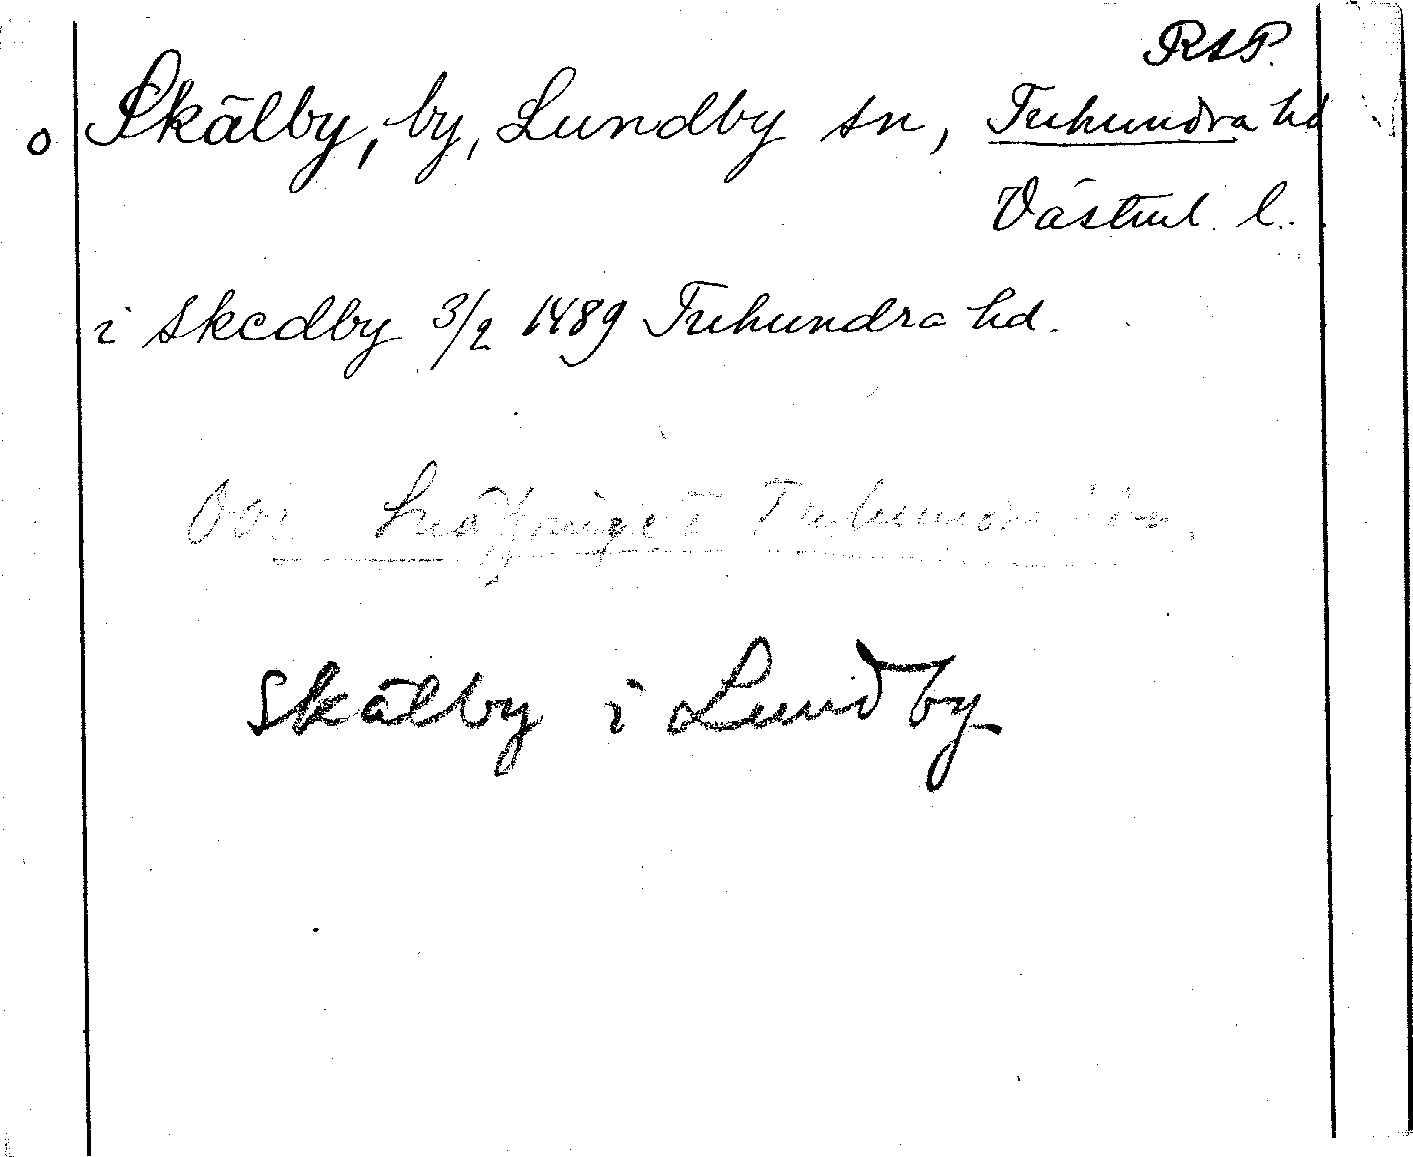 RAP.
o Skälby, by, Lundby sn, Tuhundra hd
Västml. l.
i Skedby 3/2 1489 Tuhundra hd.
Skälby i Lundby